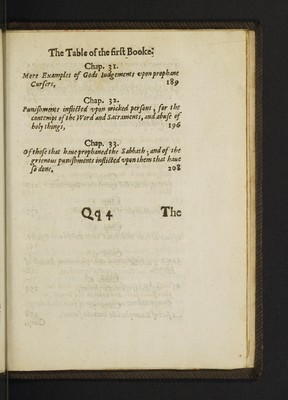 The Table of the first Booke.
Chap. 31.
More Examples of Gods Iudgements vpon prophane
Cursers, 189
Chap. 32.
Punishments inflicted vpon wicked persons, for the
contempt of the Word and Sacraments, and abuse of
holy things, 196
Chap. 33.
Of those that haue prophaned the Sabbath, and of the
grieuous punishments inflicted vpon them that haue
so done, 208
Qq 4 The